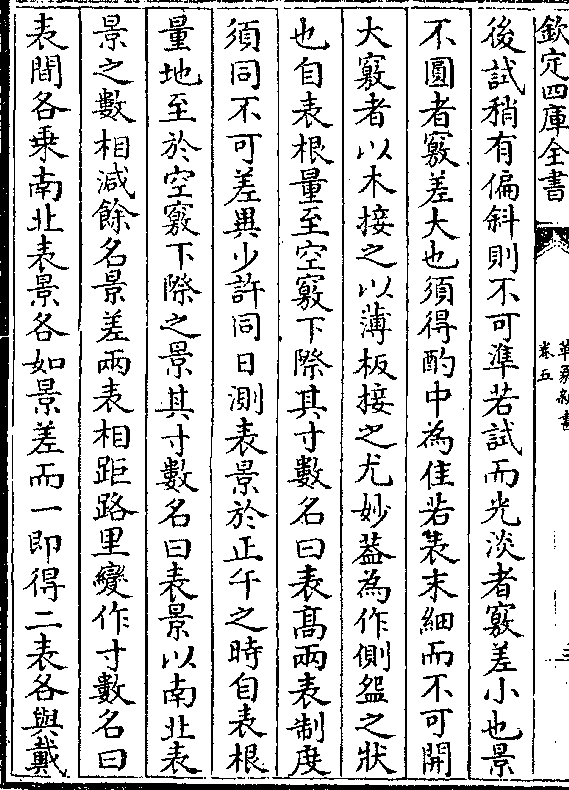 欽定四庫全書
卷五
後試稍有偏斜則不可準若試而光淡者竅差小也景
不圓者竅差大也須得酌中為佳若表末細而不可開
大竅者以木接之以薄板接之尤妙葢為作側盌之狀
也自表根量至空竅下際其寸數名曰表髙兩表制度
須同不可差異少許同日測表景於正午之時自表根
量地至於空竅下際之景其寸數名曰表景以南北表
景之數相減餘名景差兩表相距路里變作寸數名曰
表間各乗南北表景各如景差而一即得二表各與戴